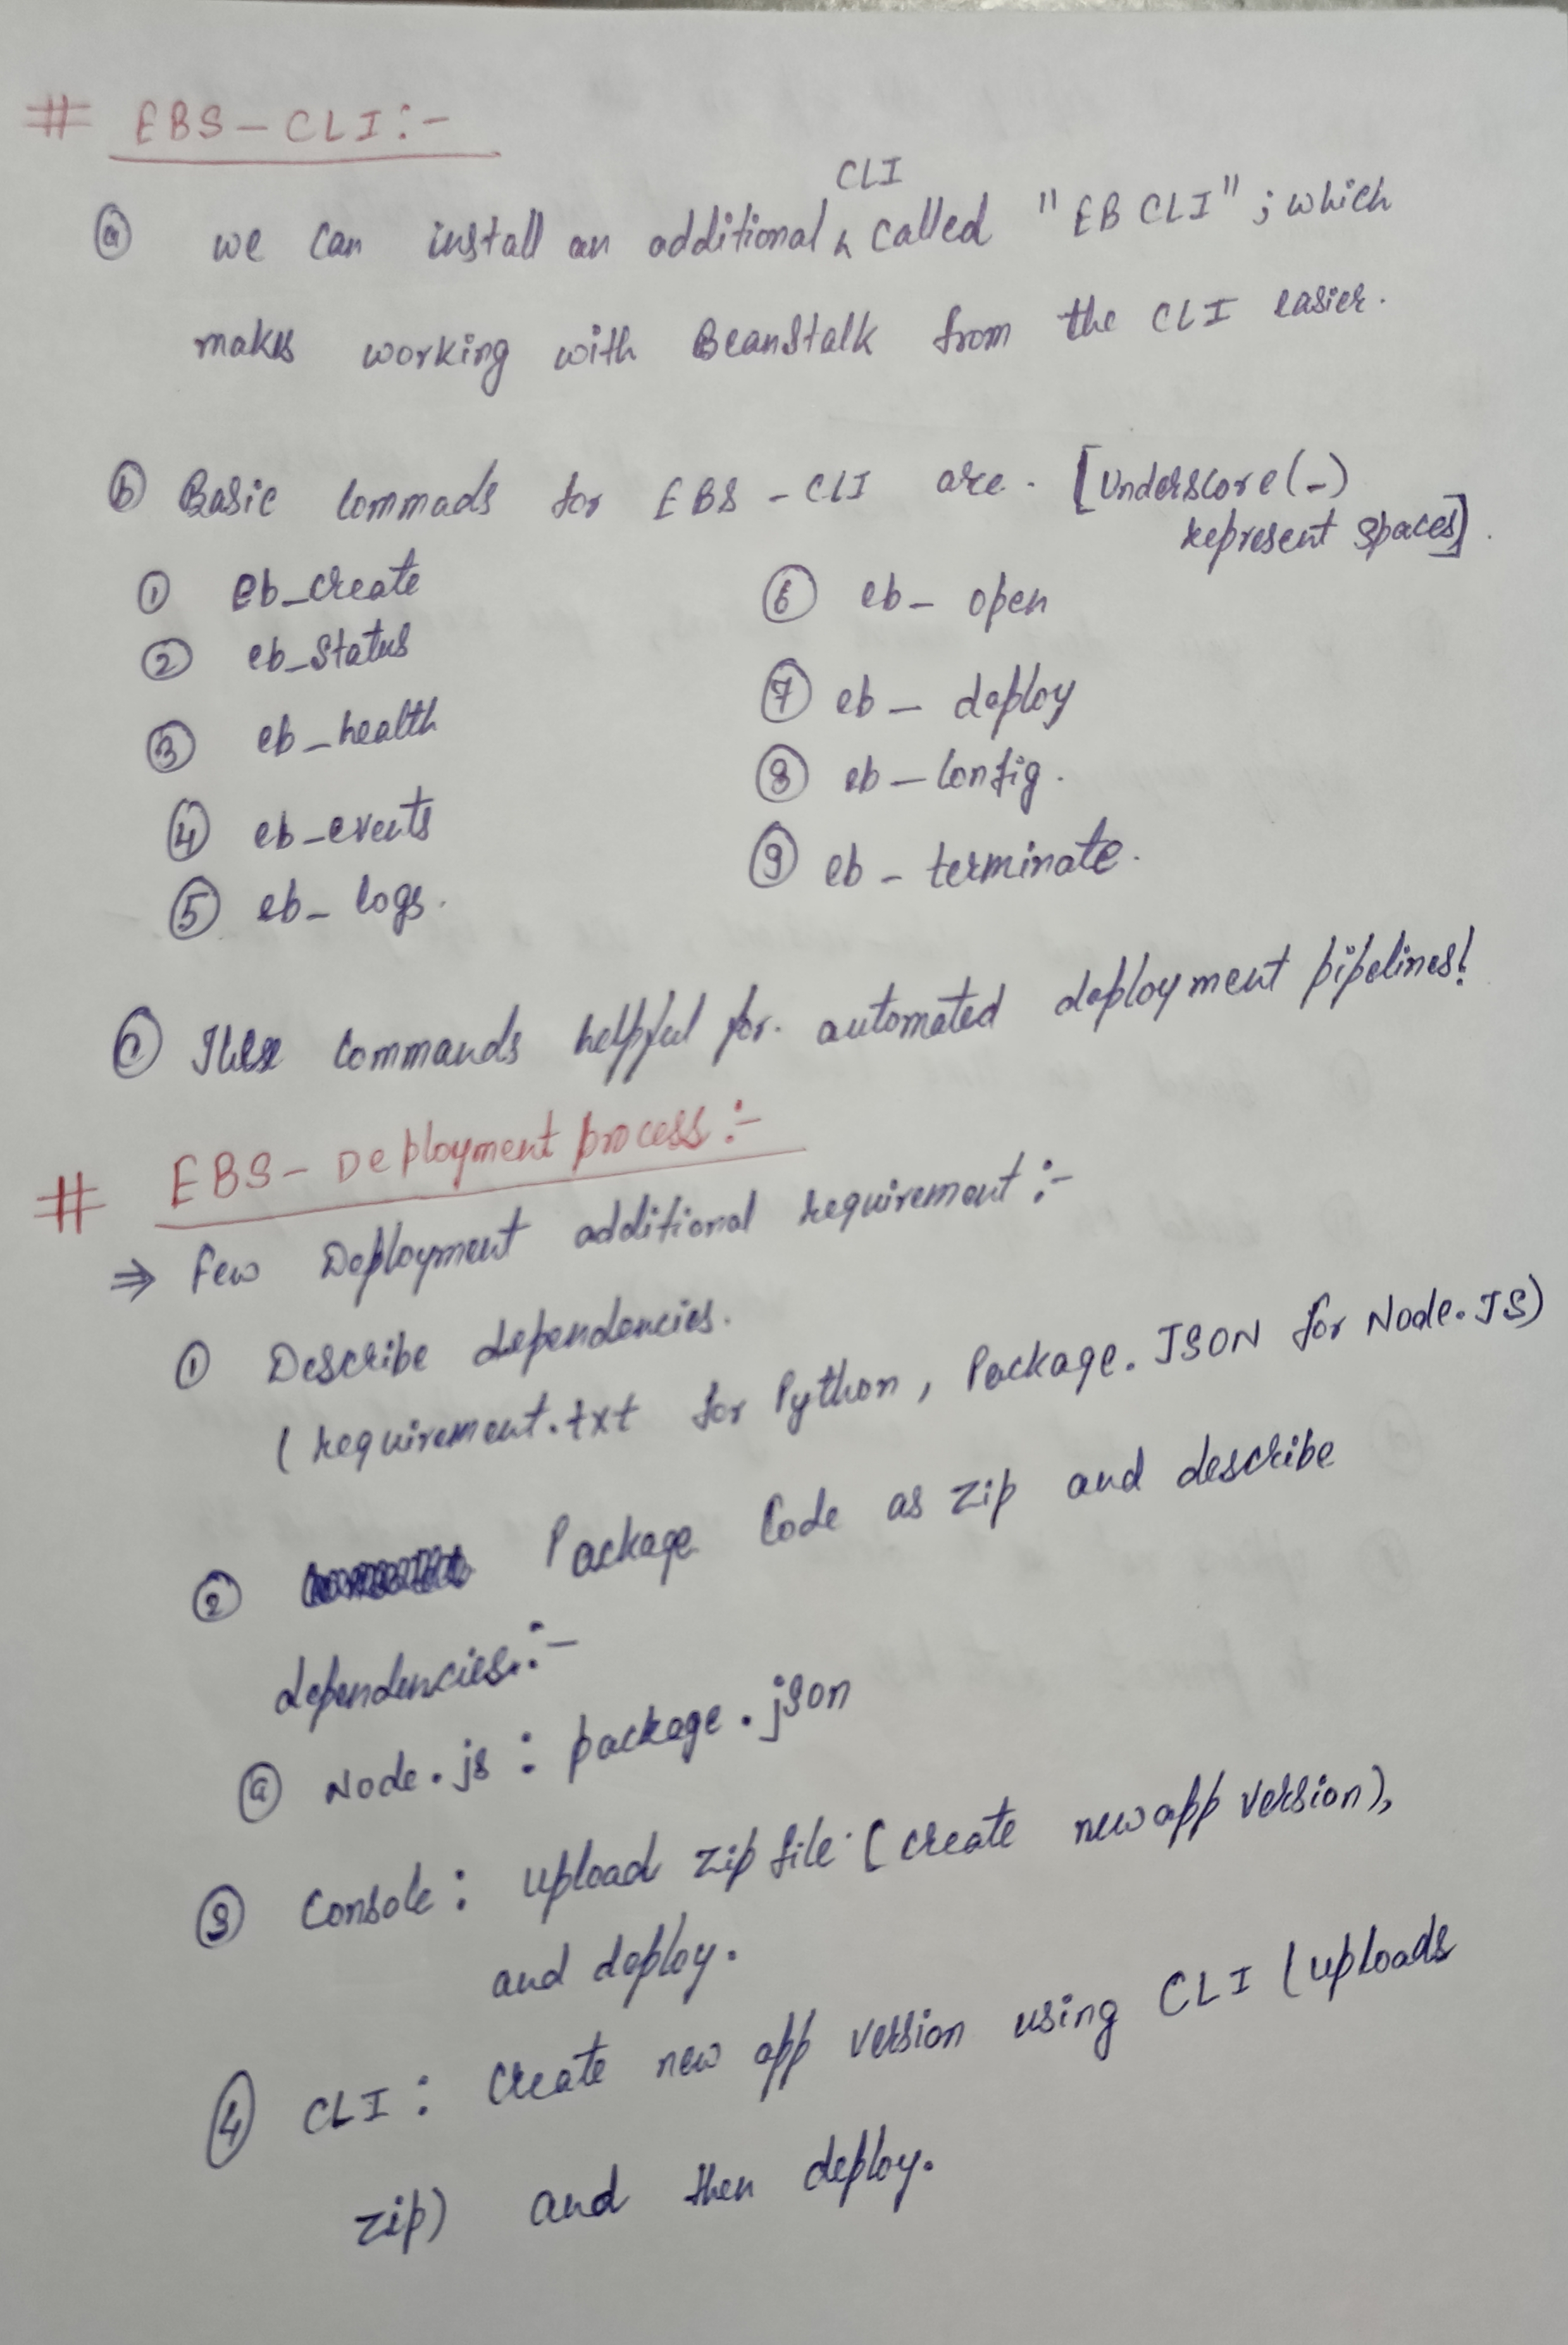 # EBS-CLI:-
ⓐ we can install an additional CLI called "EB CLI"; which
makes working with BeanStalk from the CLI easier.
ⓑ Basic Commads for EBS-CLI are. [Underscore(_)
represent spaces].
① eb_create
② eb_status
③ eb_health
④ eb_events
⑤ eb_logs.
⑥ eb_open
⑦ eb_deploy
⑧ eb_config.
⑨ eb_terminate.
ⓒ These commands helpful for. automated deployment pipelines!
# EBS-Deployment process:-
⇒ Few Deployment additional requirement:-
① Describe dependencies.
(requirement.txt for Python, Package.JSON for Node.JS)
② Package Code as zip and describe
dependencies:-
ⓐ Node.js : package.json
③ Console: upload zip file (create new app version),
and deploy.
④ CLI: Create new app version using CLI (uploads
zip) and then deploy.